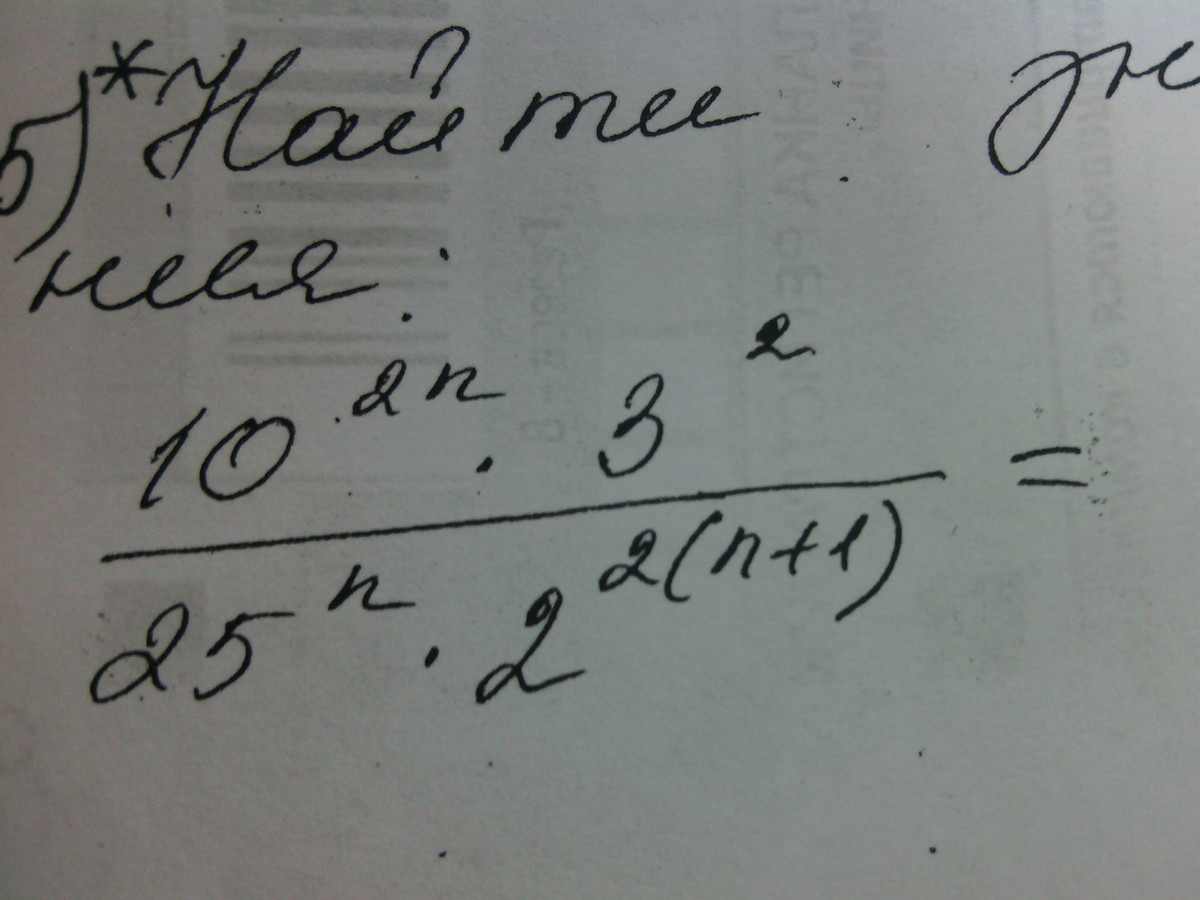 5)* Найти зн
ния:
10^{2n} · 3^2 / 25^n · 2^{2(n+1)} =